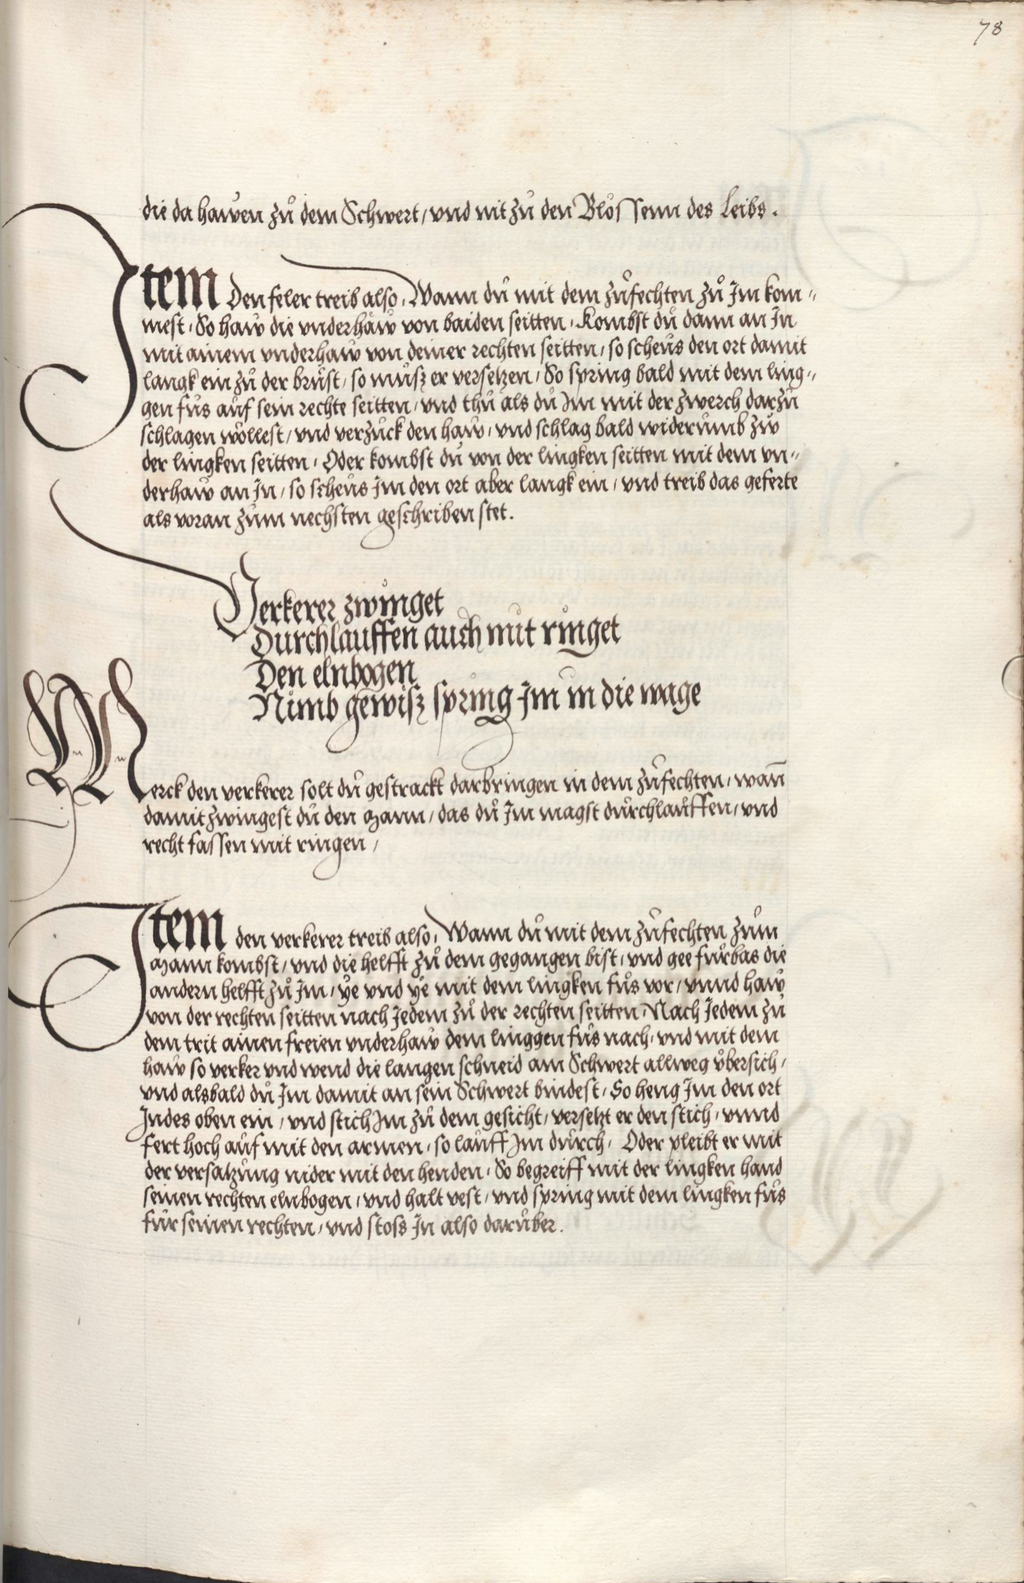 78
die da hawen zů dem Schwert / vnd nit zů den Blössenn des Leibs.
Item Den feler treib also, Wann dů mit dem zůfechten zů Im kom=
mest, So haw die vnderhäw von baiden seitten, Kombst dů dann an In
mit ainem vnderhaw von deiner rechten seitten / so scheůs den ort damit
langk ein zů der brůst / so můsz er versetzen / So spring bald mit dem ling=
gen fůs aůf sein rechte seitten / vnd thů als dů Im mit der zwerch darzů
schlagen wöllest / vnd verzůck den haw, vnd schlag bald widerůmb zůo
der lingken seitten, Oder kombst dů von der lingken seitten mit dem vn=
derhaw an In / so scheůs Im den ort aber langk ein / vnd treib das geferte
als voran zům nechsten geschriben stet.
Verkerer zwinget
Durchlauffen auch mit ringet
Den elnbogen
Nimb gewisz spring Im in die wage
Merck den verkerer solt dů gestrackt darbringen in dem zůfechten, wañ
damit zwingest dů den Mann / das dů Im magst důrchlaůffen, vnd
recht fassen mit ringen /
Item den verkerer treib also, Wann dů mit dem zůfechten zům
Mann kombst / vnd die helfft zů dem gegangen bist / vnd gee fůrbas die
andern helfft zů Im / ye vnd ye mit dem lingken fůs vor / vnnd haw
von der rechten seitten nach Jedem zů der rechten seitten, Nach Jedem zů
dem trit ainen freien vnderhaw dem linggen fůs nach, vnd mit dem
haw so verker vnd wend die langen schneid am Schwert allweg ůbersich /
vnd alsbald dů Im damit an sein Schwert bindest, So heng Im den ort
Indes oben ein / vnd stich Im zů dem gesicht, versetzt er den stich, vnnd
fert hoch aůf mit den armen, so laůff Im důrch, Oder pleibt er mit
der versatzůng nider mit den henden, So begreiff mit der lingken hand
seinen rechten elnbogen / vnd halt vest / vnd spring mit dem lingken fůs
fůr seinen rechten / vnd stoss In also darůber.